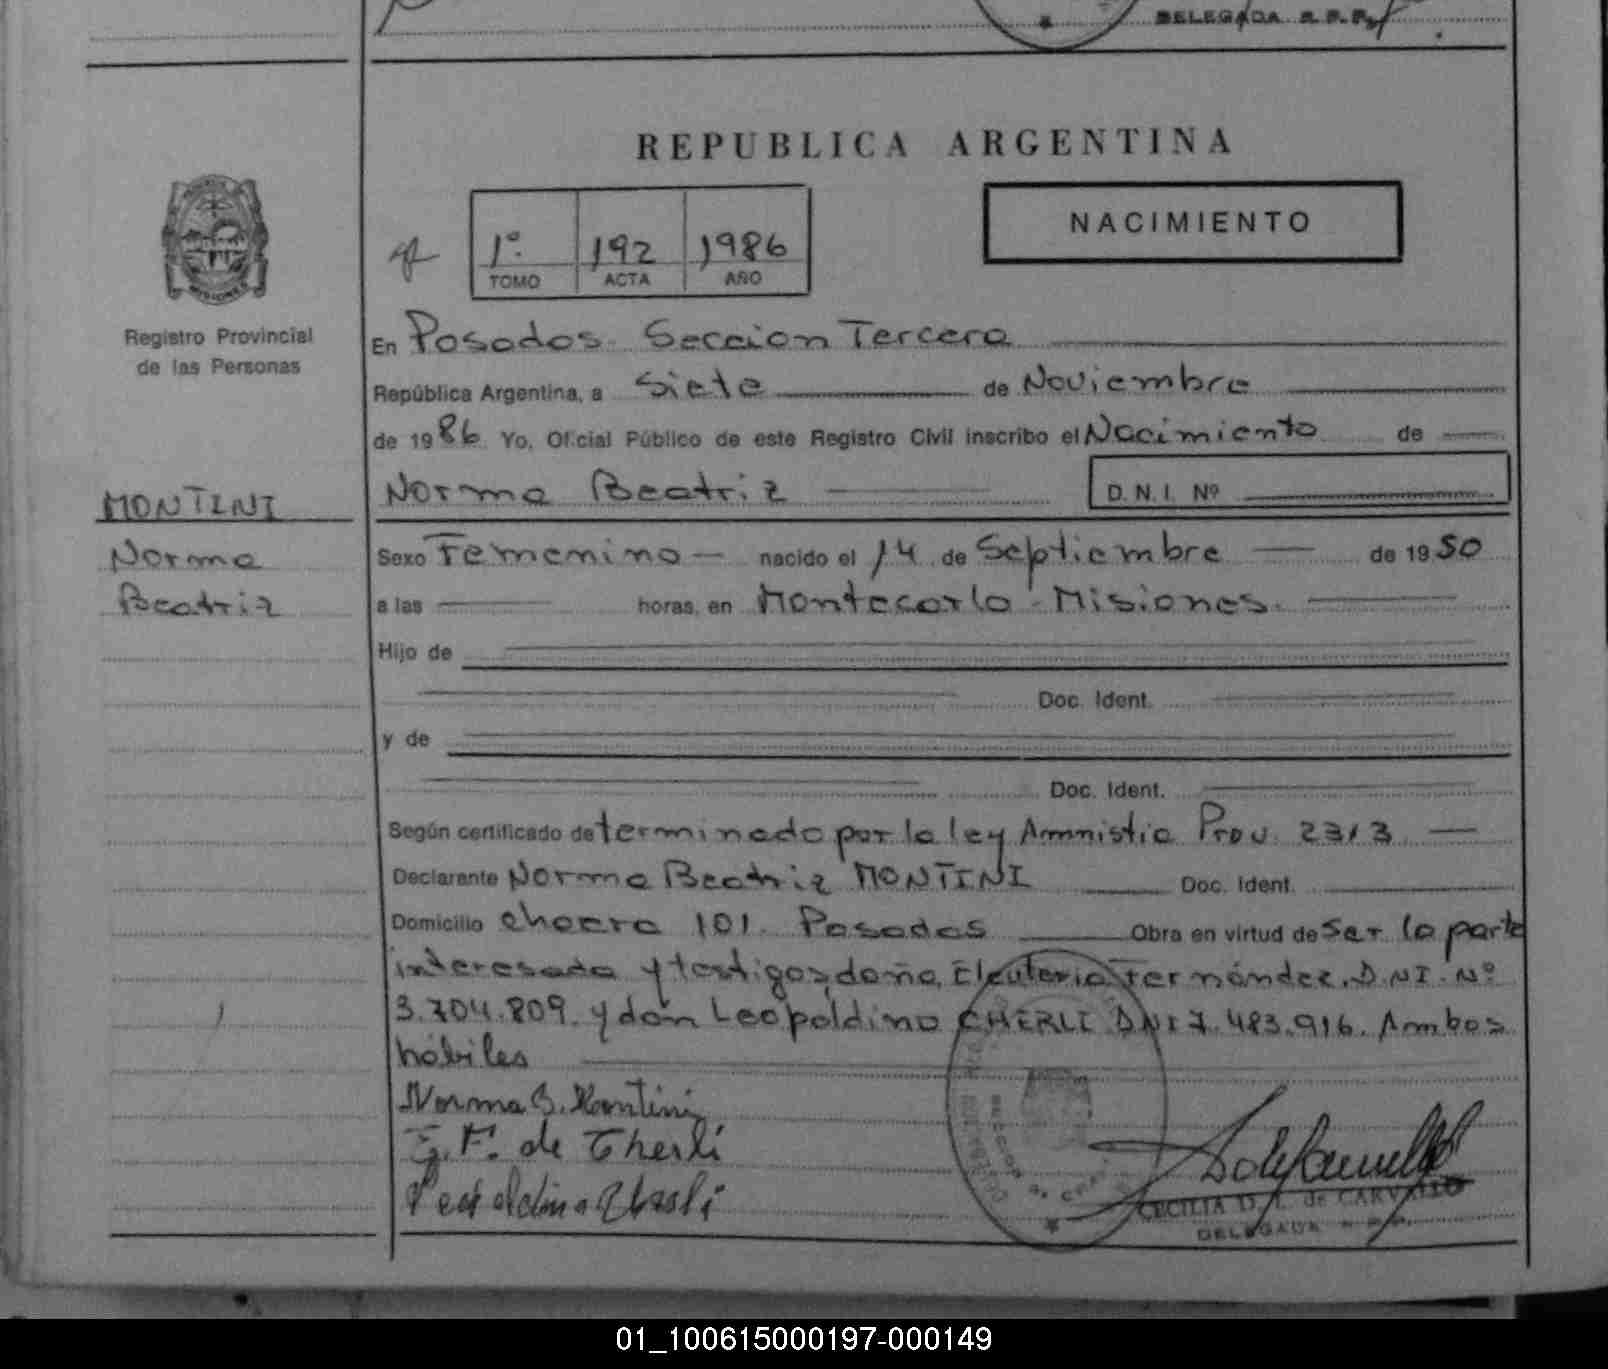 DELEGADA R. P. P.
REPUBLICA ARGENTINA
NACIMIENTO
1º 192 1986
TOMO ACTA AÑO
Registro Provincial
de las Personas
En Posadas Seccion Tercera
República Argentina, a Siete de Noviembre
de 1986 Yo, Oficial Público de este Registro Civil inscribo el Nacimiento de
Norma Beatriz D. N. I. Nº
MONTINI
Norma
Beatriz
Sexo Femenino nacido el 14 de Septiembre de 1950
a las horas, en Montecarlo Misiones.
Hijo de
Doc. Ident.
y de
Doc. Ident.
Según certificado determinado por la ley Amnistia Prov. 2313
Declarante Norma Beatriz MONTINI Doc. Ident.
Domicilio chacra 101. Posadas Obra en virtud de Ser la parte
interesada y testigos, doña, Eleuteria Fernández. D.N.I. Nº
3.704.809. y don Leopoldino CHERLI DNI 7.483.916. Ambos
hábiles
Norma B. Montini
E. F. de Cherli
Leopoldino Cherli
CECILIA D. L. de CARVALLO
DELEGADA R. P. P.
01_100615000197-000149